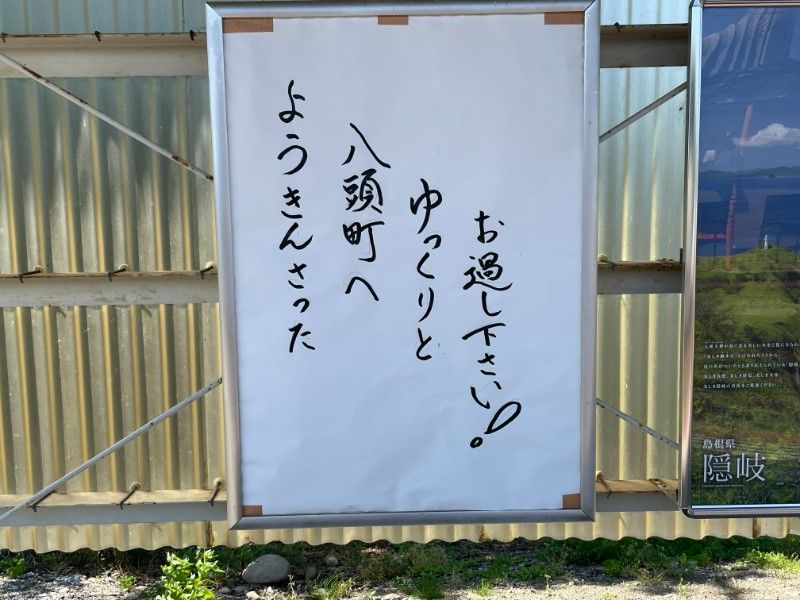 ようきんさった
八頭町へ
ゆっくりと
お過し下さい!
島根県
隠岐